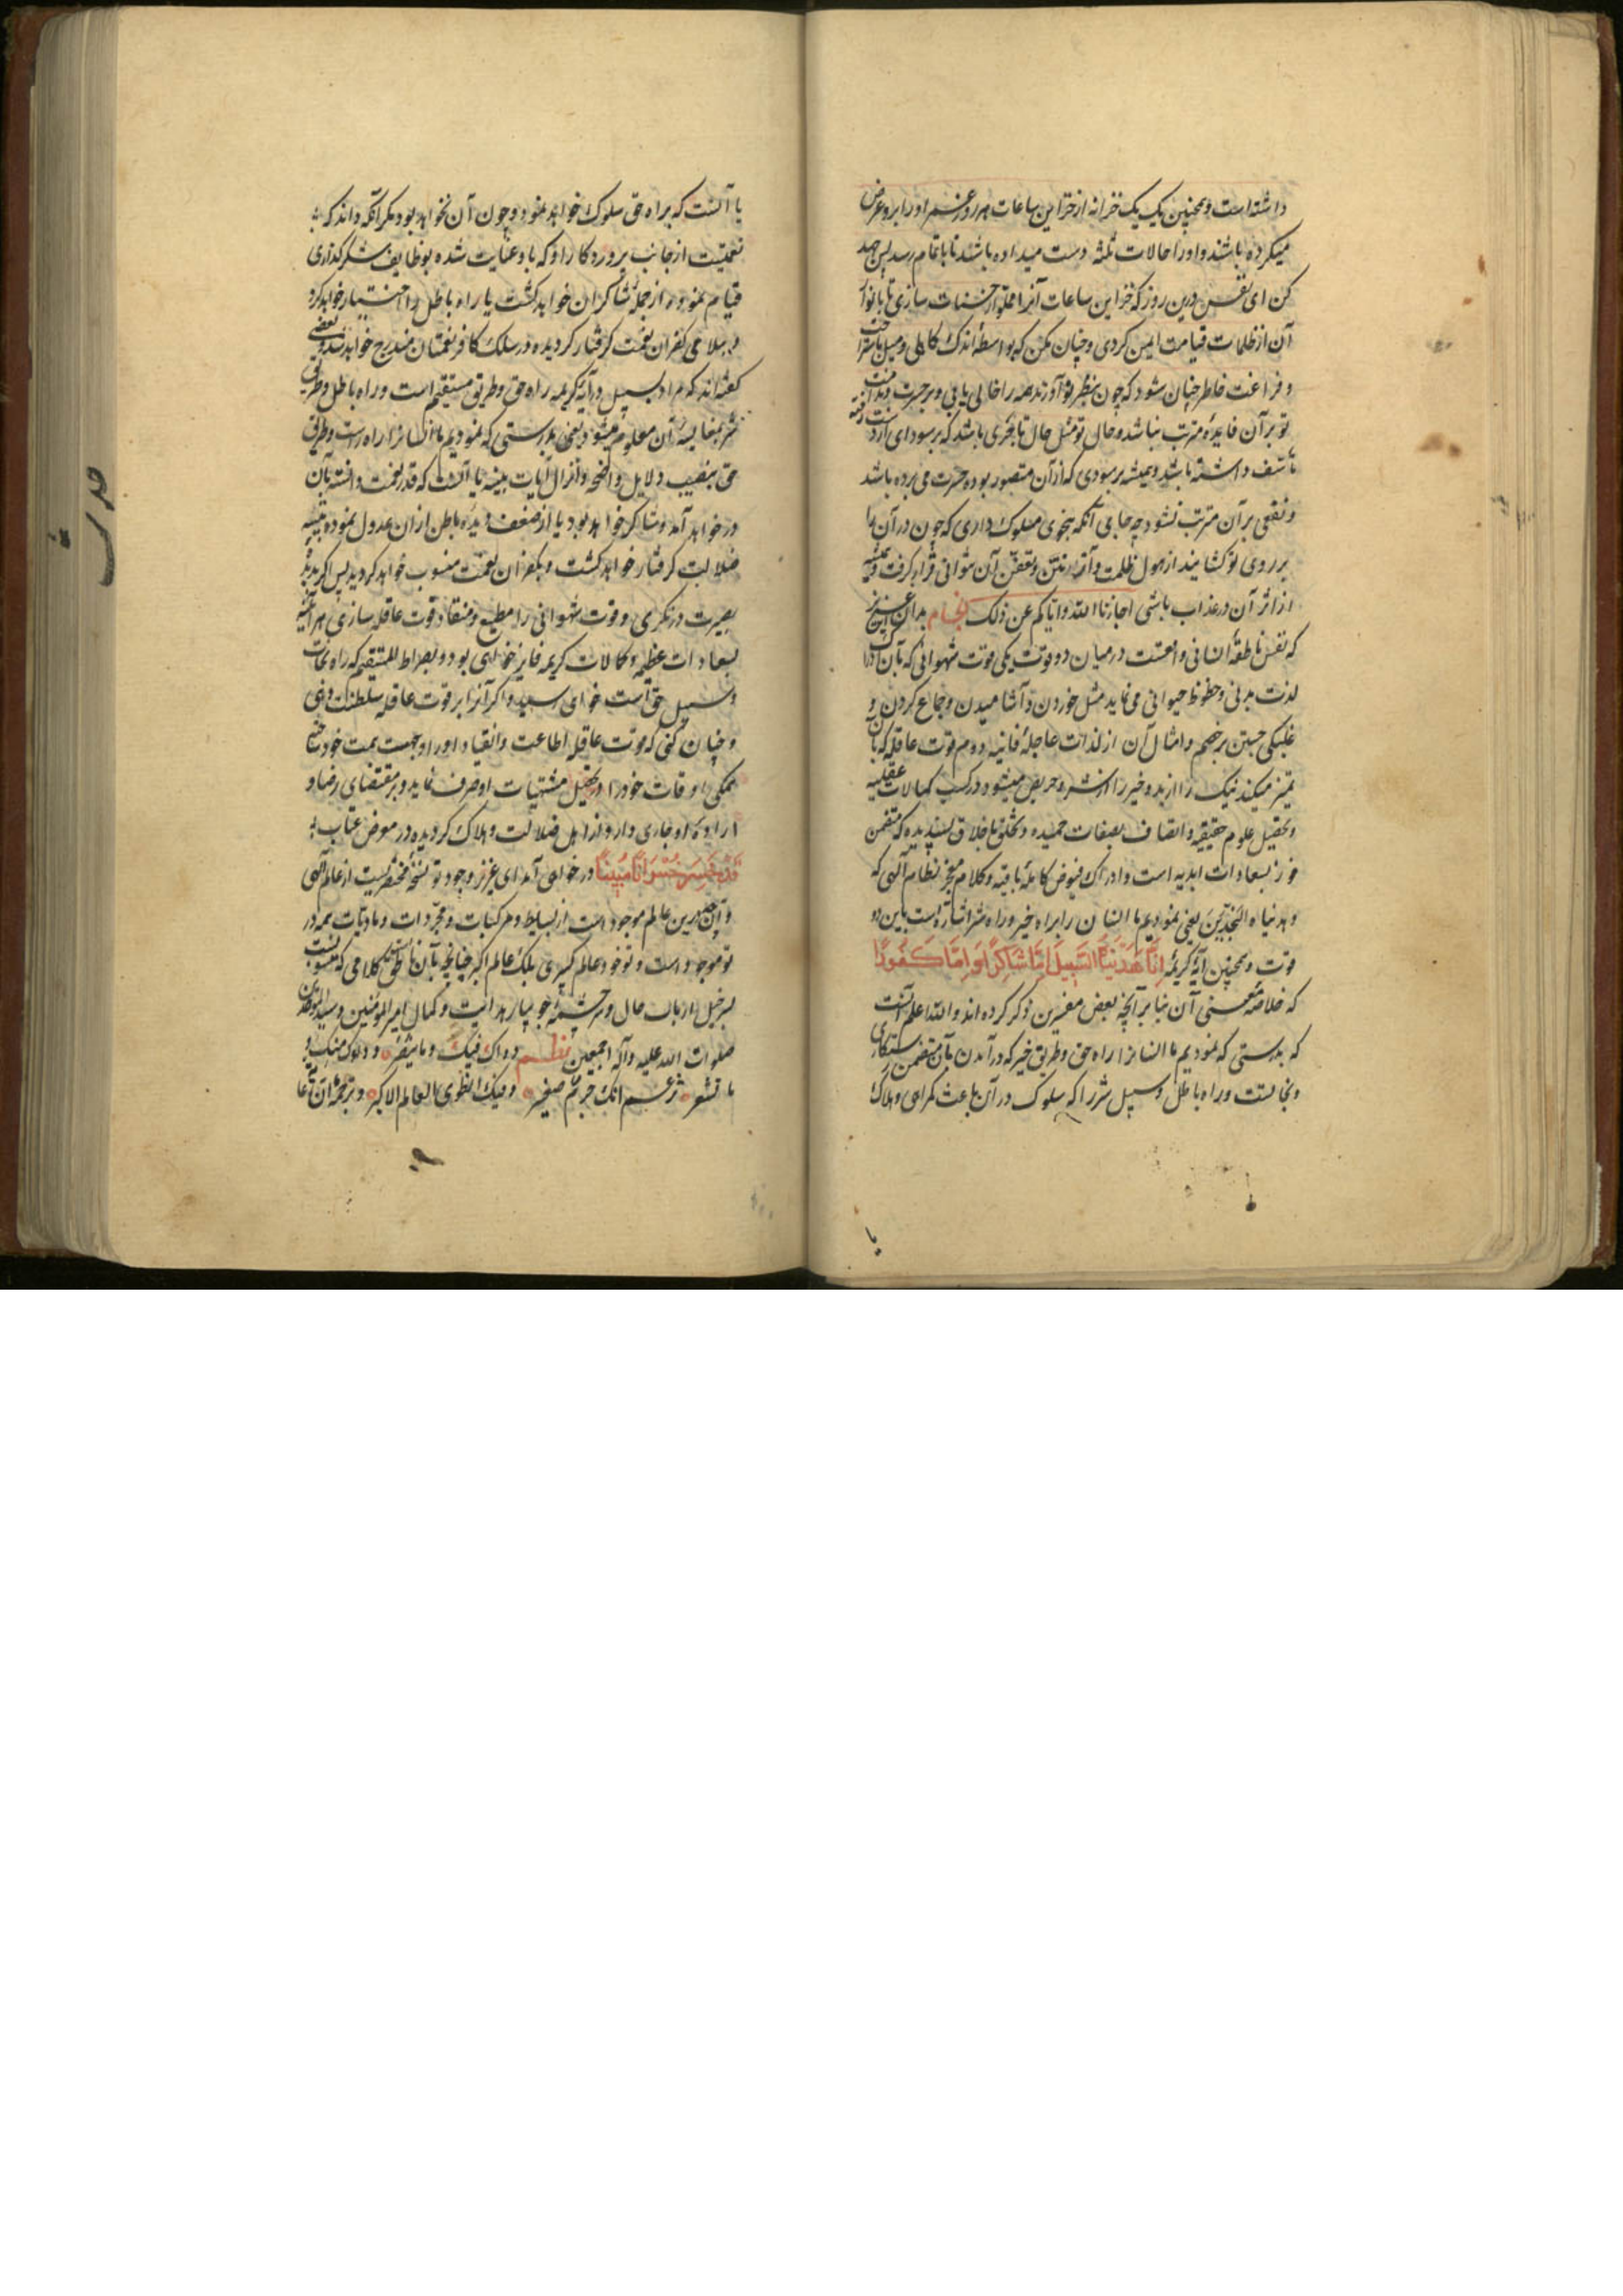 داشته است و همچنین یک یک خزانه از خزاین ساعات هر روز عمر او را برو عرض
میکرده باشند و او را حالات ثلثه دست میداده باشد تا باتمام رسد پس جهد
کن ای نفس درین روز که خزاین ساعات آنرا مملو از حسنات سازی تا بانوار
آن از ظلمات قیامت ایمن کردی و چنان مکن که بواسطهٔ اندک کاهلی و میل باستراحت
و فراغت خاطر چنان شود که چون بنظر تو آورند همه را خالی یابی و بر حسرت و ندامت
تو بر آن فایدهٔ مترتب نباشد و حال تو مثل حال تاجری باشد که بر سودای از دست رفته
تاسف داشته باشد و همیشه بر سودی که از آن متصور بوده حسرت می برده باشد
و نفعی بر آن مترتب نشود چه جای آنکه بنحوی سلوک داری که چون در آن را
بر روی تو کشایند از هول ظلمت و آثار نتن و تعفن آن نتوانی قرار گرفت و همیشه
از اثر آن در عذاب باشی اجازنا الله و ایاکم عن ذلک انجام بدان ای عزیز
که نفس ناطقهٔ انسانی واقعست در میان دو قوت یکی قوت شهوانی که بآن ادراک
لذت بدنی و حظوظ حیوانی می نماید مثل خوردن و آشامیدن و جماع کردن و
غلبکی جستن بر خصم و امثال آن از لذات عاجلهٔ فانیه دوم قوت عاقله که بآن
تمیز میکند نیک را از بد و خیر را از شر و حریص میشود در کسب کمالات عقلیه
و تحصیل علوم حقیقیه و اتصاف بصفات حمیده و تخلق باخلاق پسندیده که متضمن
فوز بسعادات ابدیه است و ادراک فیوض کاملهٔ باقیه و کلام معجز نظام الهی که
و هدیناه النجدین یعنی نمودیم ما انسان را براه خیر و راه شر اشارتست باین دو
قوت و همچنین آیهٔ کریمهٔ اِنّا هَدَینَاهُ السَّبیلَ اِمَّا شاکِرًا وَ اِمَّا کَفُورًا
که خلاصهٔ معنی آن بنا بر آنچه بعض مفسرین ذکر کرده اند و الله اعلم آنست
که بدرستی که نمودیم ما انسانرا راه حق و طریق خیر که در آمدن بآن متضمن رستکاری
و نجاتست و راه باطل و سبیل شر را که سلوک در آن باعث کمراهی و هلاک
یا
یا آنست که براه حق سلوک خواهد نمود و چون آن نخواهد بود مکر آنکه داند که
نعمتیست از جانب پروردکار او که باو عنایت شده بوظایف شکر کذاری
قیام نموده از جمله شاکران خواهد کشت یا راه باطل را اختیار خواهد کرد
و ببلای کفران نعمت کرفتار کردیده در سلک کافر نعمتان مندرج خواهد شد و بعضی
کفته اند که مراد بسبیل در آیهٔ کریمه راه حق و طریق مستقیم است و راه باطل و طریق
شر بمقایسهٔ آن معلوم میشود یعنی بدرستی که نمودیم ما انسانرا راه راست و طریق
حق بنصب دلایل واضحه و انزال آیات بینه یا آنست که قدر نعمت دانسته بآن
در خواهد آمد و شاکر خواهد بود یا از ضعف دیدهٔ باطن از آن عدول نموده به تیه
ضلالت کرفتار خواهد کشت و بکفران نعمت منسوب خواهد کردید پس اکر بدیدهٔ
بصیرت در نکری و قوت شهوانی را مطیع و منقاد قوت عاقله سازی هر آینه
بسعادات عظیمه و کمالات کریمه فایز خواهی بود و بصراط المستقیم که راه نجات
و سبیل حق است خواهی رسید و اکر آنرا بر قوت عاقله سلطنت دهی
و چنان کنی که قوت عاقله اطاعت و انقیاد او را وجهت همت خود ساخته
همکی اوقات خود را در تحصیل مشتهیات او صرف نماید و بر مقتضای رضا و
ارادهٔ او جاری دارد از اهل ضلالت و هلاک کردیده در معرض عتاب
فَقَد خَسِرَ خُسرَانًا مُبِینًا در خواهی آمد ای عزیز وجود تو نسخهٔ مختصریست از عالم الهی
و آنچه درین عالم موجود است از بسایط و مرکبات و مجردات و مادیات همه در
تو موجود است و تو خود عالم کبیری بلکه عالم اکبر چنانچه بآن ناطق است کلامی که منسوبست
بسرخیل ارباب حال و سرچشمهٔ جویبار هدایت و کمال امیر المؤمنین و سید الموحدین
صلوات الله علیه و آله اجمعین نظم دواک فیک و ما تشعر و دواک منک و
ما تشعر و تزعم انک جرم صغیر و فیک انطوی العالم الاکبر و ترجمهٔ آن